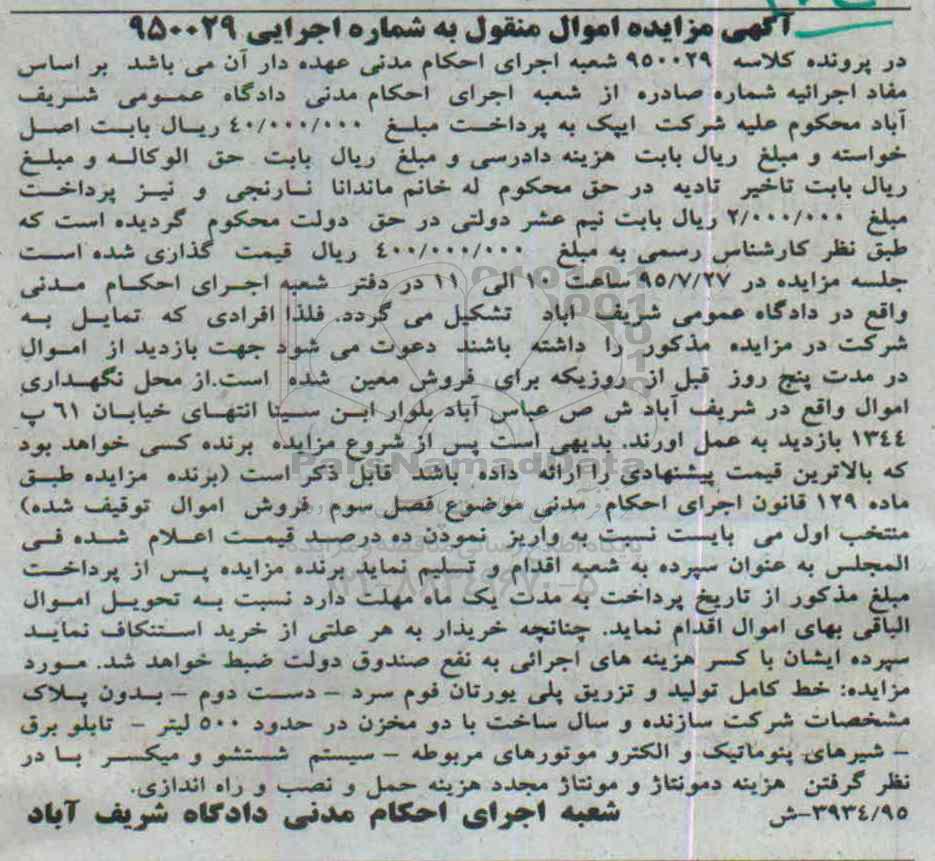 آگهی مزایده اموال منقول به شماره اجرایی ۹۵۰۰۲۹
در پرونده کلاسه ۹۵۰۰۲۹ شعبه اجرای احکام مدنی عهده دار آن می باشد بر اساس
مفاد اجرائیه شماره صادره از شعبه اجرای احکام مدنی دادگاه عمومی شریف
آباد محکوم علیه شرکت ایپک به پرداخت مبلغ ۴۰/۰۰۰/۰۰۰ ریال بابت اصل
خواسته و مبلغ ریال بابت هزینه دادرسی و مبلغ ریال بابت حق الوکاله و مبلغ
ریال بابت تاخیر تادیه در حق محکوم له خانم ماندانا نارنجی و نیز پرداخت
مبلغ ۲/۰۰۰/۰۰۰ ریال بابت نیم عشر دولتی در حق دولت محکوم گردیده است که
طبق نظر کارشناس رسمی به مبلغ ۴۰۰/۰۰۰/۰۰۰ ریال قیمت گذاری شده است
جلسه مزایده در ۹۵/۷/۲۷ ساعت ۱۰ الی ۱۱ در دفتر شعبه اجرای احکام مدنی
واقع در دادگاه عمومی شریف اباد تشکیل می گردد. فلذا افرادی که تمایل به
شرکت در مزایده مذکور را داشته باشند دعوت می شود جهت بازدید از اموال
در مدت پنج روز قبل از روزیکه برای فروش معین شده است.از محل نگهداری
اموال واقع در شریف آباد ش ص عباس آباد بلوار ابن سینا انتهای خیابان ۶۱ پ
۱۳۴۴ بازدید به عمل اورند. بدیهی است پس از شروع مزایده برنده کسی خواهد بود
که بالاترین قیمت پیشنهادی را ارائه داده باشد قابل ذکر است (برنده مزایده طبق
ماده ۱۲۹ قانون اجرای احکام مدنی موضوع فصل سوم فروش اموال توقیف شده)
منتخب اول می بایست نسبت به واریز نمودن ده درصد قیمت اعلام شده فی
المجلس به عنوان سپرده به شعبه اقدام و تسلیم نماید برنده مزایده پس از پرداخت
مبلغ مذکور از تاریخ پرداخت به مدت یک ماه مهلت دارد نسبت به تحویل اموال
الباقی بهای اموال اقدام نماید. چنانچه خریدار به هر علتی از خرید استنکاف نماید
سپرده ایشان با کسر هزینه های اجرائی به نفع صندوق دولت ضبط خواهد شد. مورد
مزایده: خط کامل تولید و تزریق پلی یورتان فوم سرد - دست دوم - بدون پلاک
مشخصات شرکت سازنده و سال ساخت با دو مخزن در حدود ۵۰۰ لیتر - تابلو برق
- شیرهای پنوماتیک و الکترو موتورهای مربوطه - سیستم شستشو و میکسر با در
نظر گرفتن هزینه دمونتاژ و مونتاژ مجدد هزینه حمل و نصب و راه اندازی.
۳۹۳۴/۹۵-ش
شعبه اجرای احکام مدنی دادگاه شریف آباد
ParsNamadData